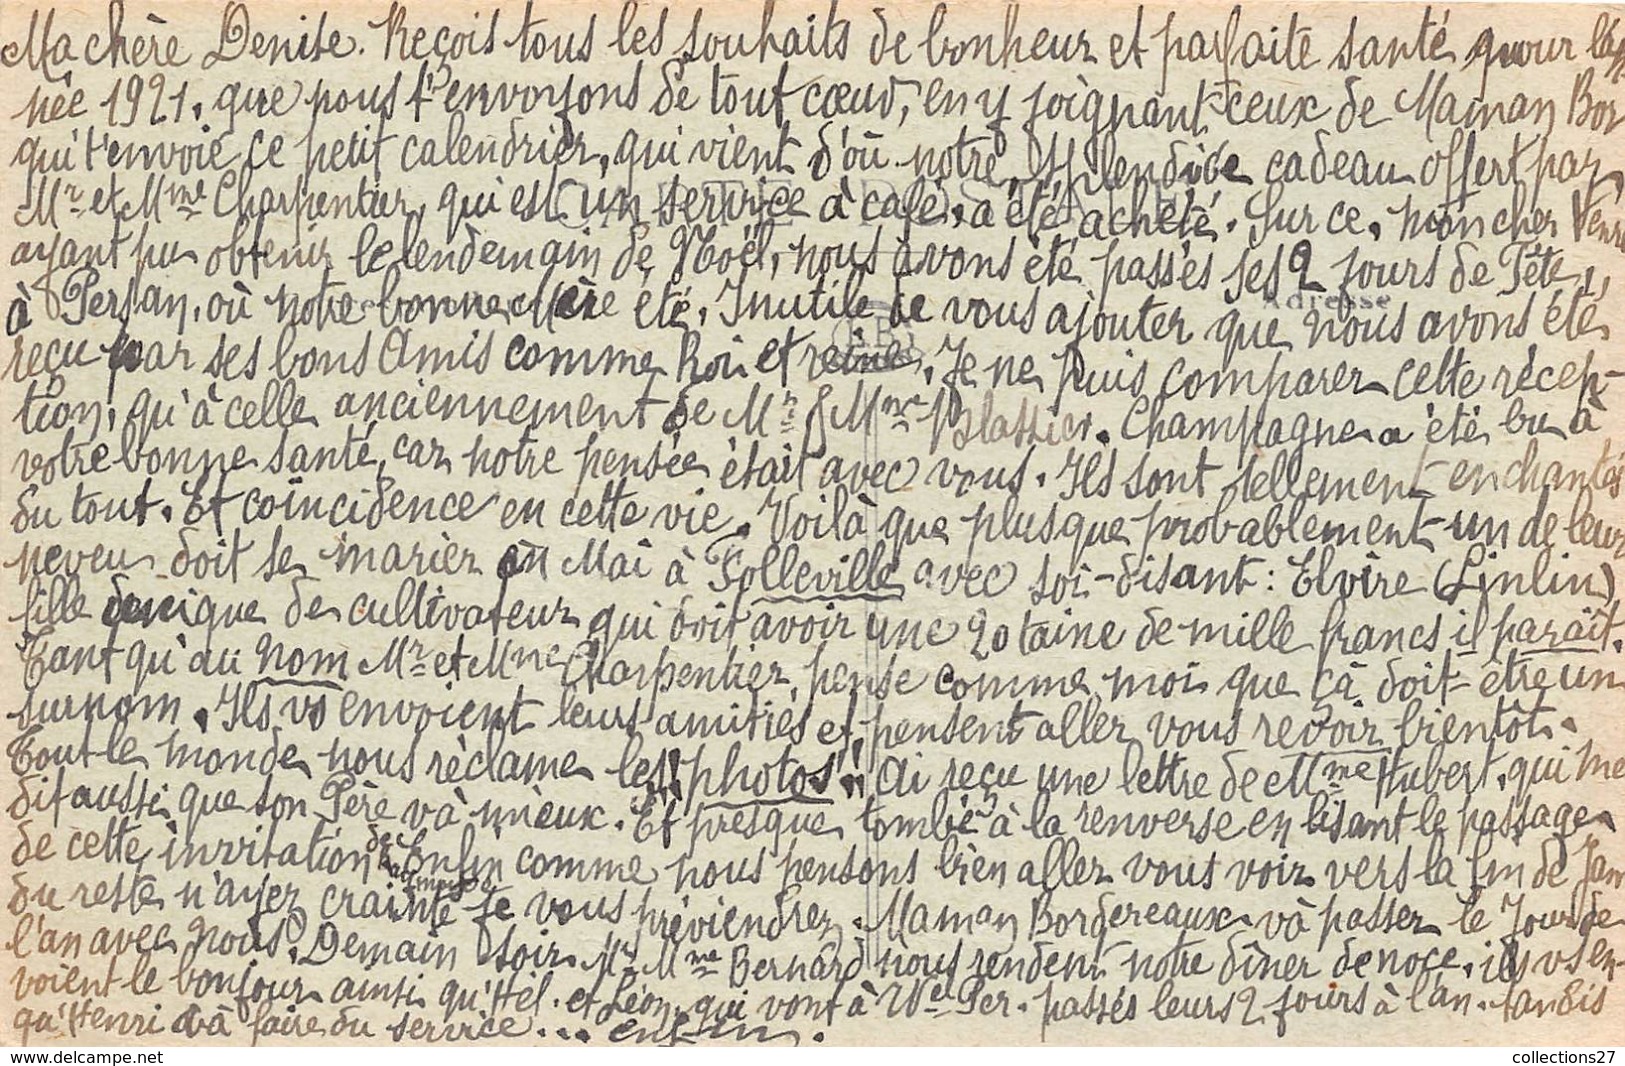 Ma chère Denise. Reçois tous les souhaits de bonheur et parfaite santé pour l'an-
née 1921, que nous t'envoyons de tout cœur, en y joignant ceux de Maman Bor
qui t'envoie ce petit calendrier, qui vient d'où notre splendide cadeau offert par
Mr et Mme Charpentier, qui est un service à café, a été acheté. Sur ce, mon cher Henri
ayant pu obtenir le lendemain de Noël, nous avons été passés ses 2 jours de Fête,
à Persan, où notre bonne Mère été. Inutile de vous ajouter que nous avons été
reçu par ses bons Amis comme Roi et reine. Je ne puis comparer cette récep-
tion, qu'à celle anciennement de Mr & Mme Champagne a été bu à
votre bonne santé, car notre pensée était avec vous. Ils sont tellement enchantés
du tout. Et coïncidence en cette vie. Voilà que plusque probablement un de leur
neveu doit se marier en Mai à Folleville avec soi-disant: Elvire (Linlin)
fille unique de cultivateur qui doit avoir une 20taine de mille francs il parait.
Tant qu'au nom Mr et Mme Charpentier, pense comme moi que çà doit être un
surnom. Ils vs envoient leurs amitiés et pensent aller vous revoir bientôt.
Tout le monde nous réclame les! photos!! Ai reçu une lettre de Mme Hubert, qui me
dit aussi que son Père và mieux. Et presque tombée à la renverse en lisant le passage
de cette invitation de Enfin comme nous pensons bien aller vous voir vers la fin de Jan
du reste n'ayez crainte je vous préviendrez. Maman Bordereaux và passer le Jour de
l'an avec nous. Demain soir Mr Mme Bernard nous rendent notre dîner de noce. ils vs en-
voient le bonjour ainsi qu'Hél. et Léon, qui vont à passés leurs 2 jours à l'an. tandis
qu'Henri và faire du service... enfin.
CARTE POSTALE
Adresse
collections27